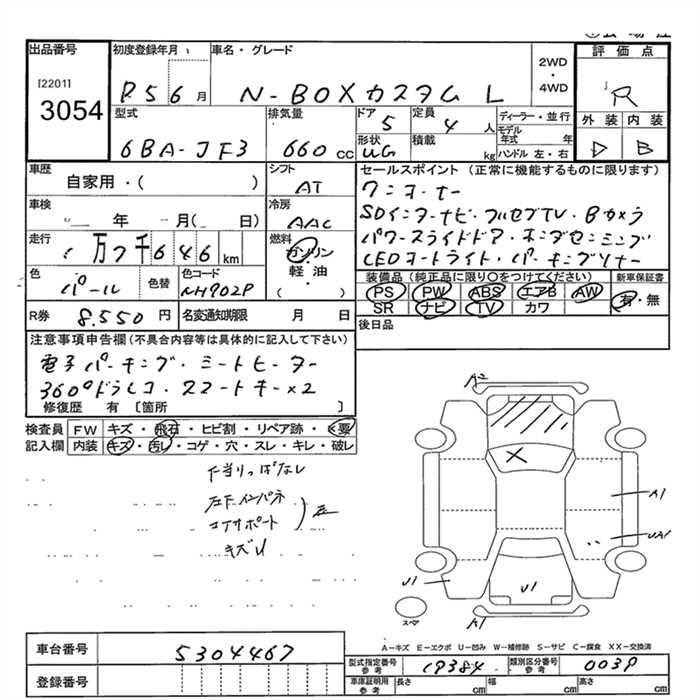 出品番号
[2201]
3054
初度登録年月
R5 6月
車名・グレード
N-BOXカスタム L
2WD
・
4WD
評価点
R
外装 内装
D B
型式
6BA-JF3
排気量
660 CC
ドア
5
形状
UG
定員
4 人
積載
kg
ディーラー・並行
モデル年式 年
ハンドル 左・右
車歴
自家用・( )
シフト
AT
車検
年 月( 日)
冷房
AAC
走行
1万7千646 km
燃料
ガソリン
軽油
( )
色
パール
色替
色コード
NH902P
R券
8,550 円
名変通知期限 月 日
セールスポイント (正常に機能するものに限ります)
ワンオーナー
SDインターナビ・フルセグTV・Bカメラ
パワースライドドア・ホンダセンシング
LEDオートライト・パーキングソナー
装備品 (純正品に限り○をつけてください)
PS PW ABS エアB AW
SR ナビ TV カワ
新車保証書
有・無
後日品
注意事項申告欄 (不具合内容等は具体的に記入して下さい)
電子パーキング・シートヒーター
360°ドラレコ・スマートキー×2
修復歴 有 〔箇所 〕
検査員
記入欄
FW キズ・飛石・ヒビ割・リペア跡・×要
内装 キズ・汚レ・コゲ・穴・スレ・キレ・破レ
下当りっぱなし
左Fインパネ
コアサポート
左
キズU
A2
X
A1
UA1
U1
U1
A1
スペア
A－キズ E－エクボ U－凹み W－補修跡 S－サビ C－腐食 XX－交換済
車台番号
5304467
登録番号
型式指定番号
参考
19384
類別区分番号
参考
0039
車庫証明用
参考
長さ cm
幅 cm
高さ cm